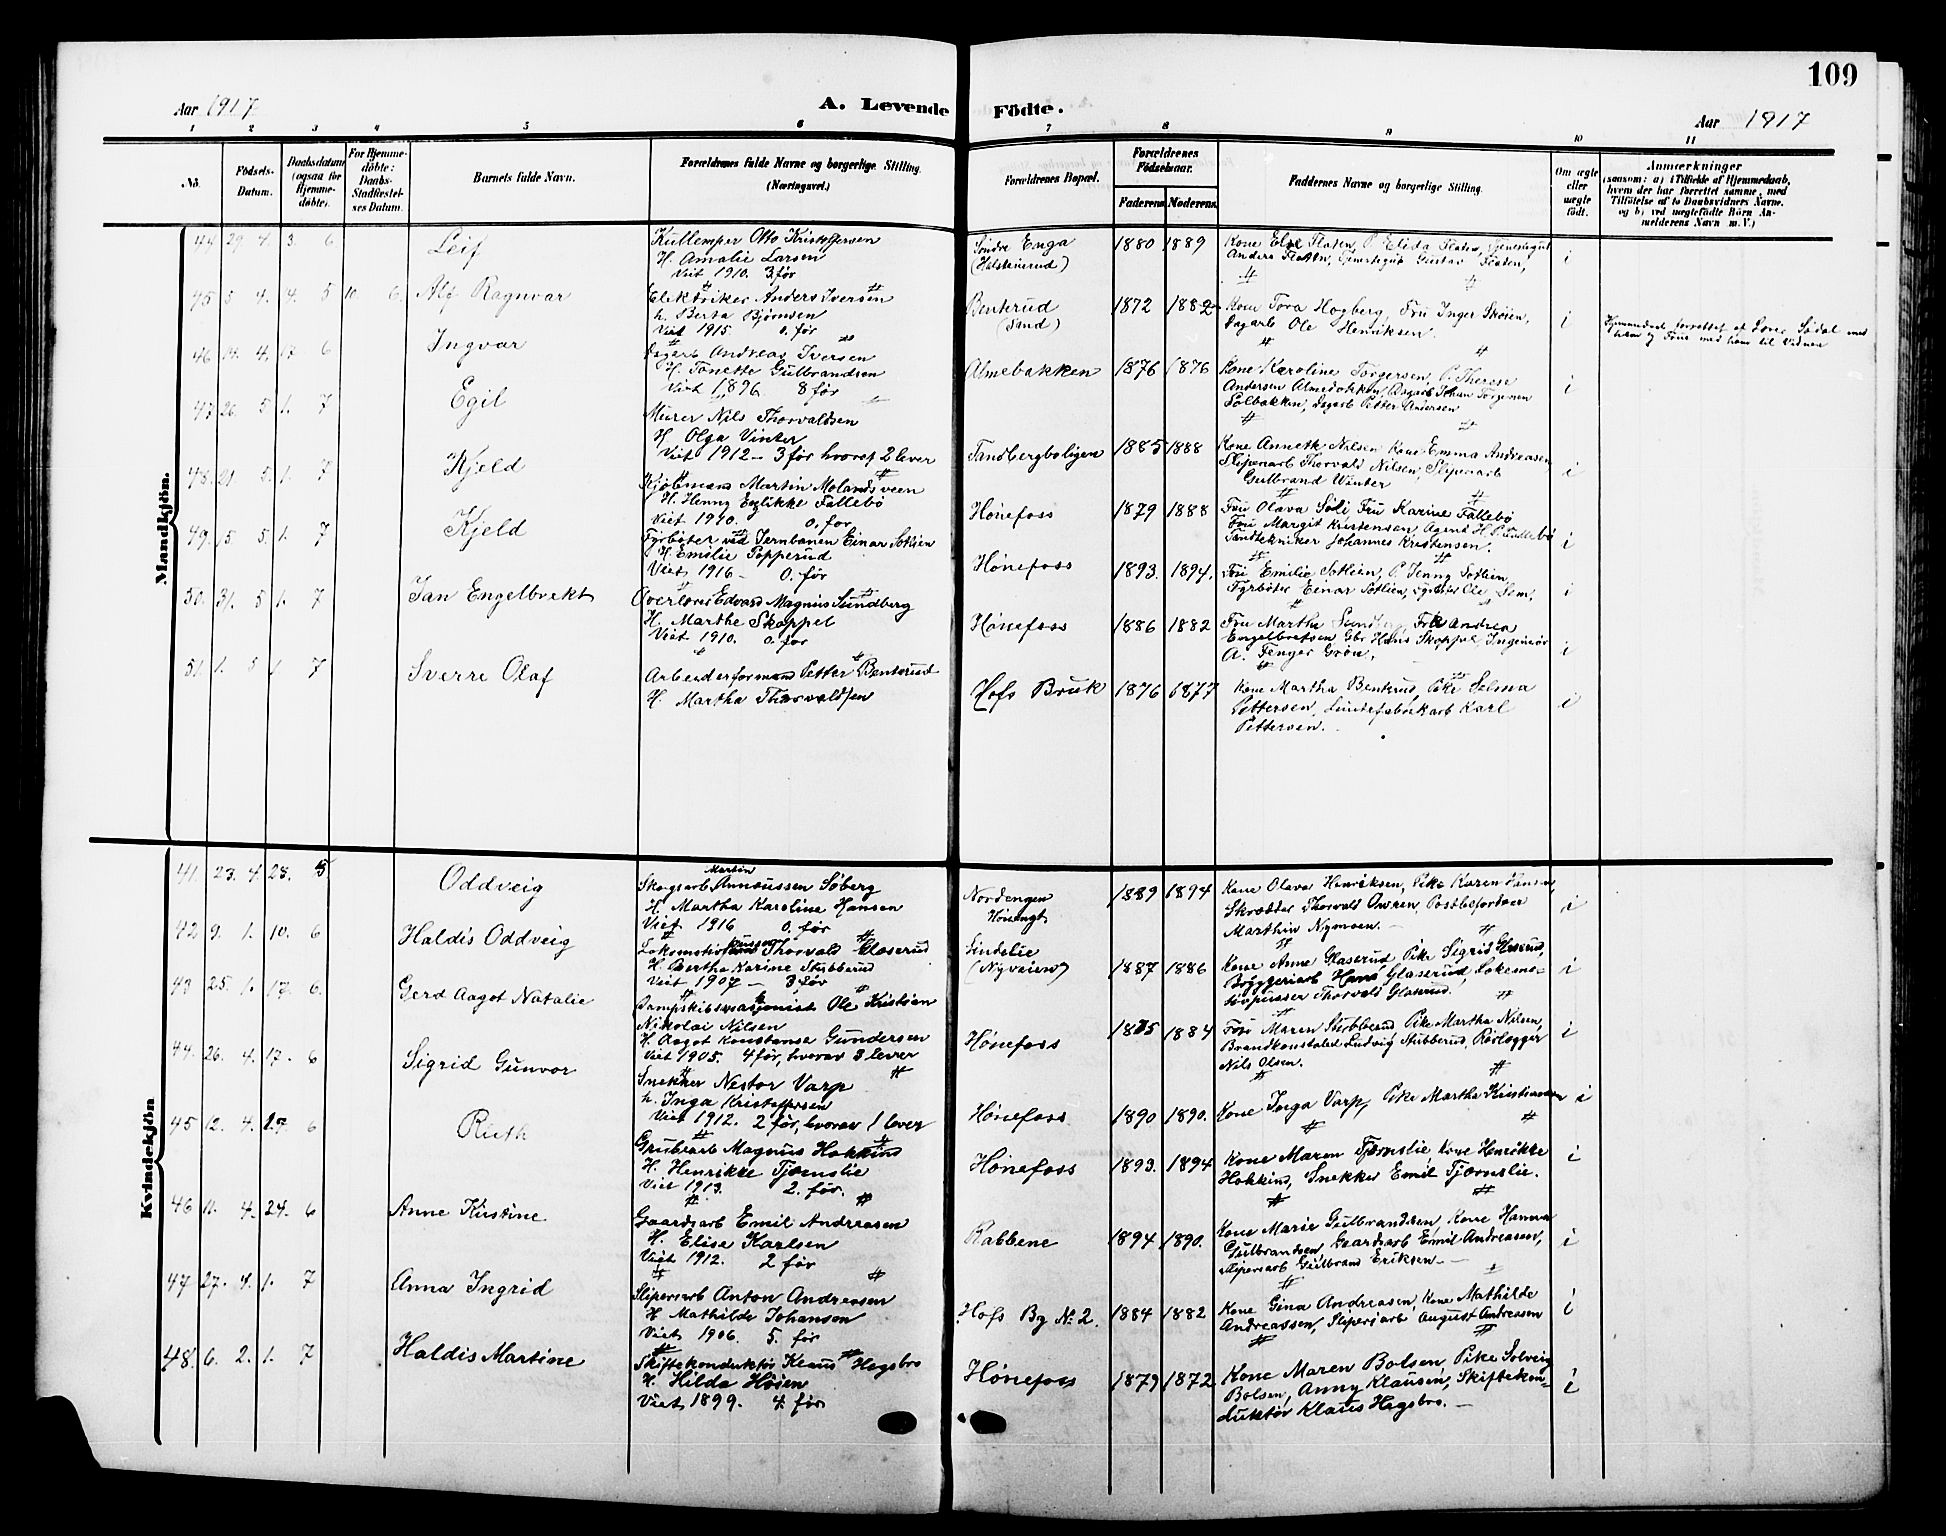 109
Aar 1917
A. Levende Födte.
Aar 1917
1 2 3 4 5 6 7 8 9 10 11
No.
Födsels-Datum.
Daabsdatum (ogsaa for Hjemme-döbte).
For Hjemme-döbte: Daabs-Stadfæstel-ses Datum.
Barnets fulde Navn.
Forældrenes fulde Navne og borgerlige Stilling. (Næringsvei.)
Forældrenes Bopæl.
Forældrenes Födselsaar.
Faderens. Moderens.
Faddernes Navne og borgerlige Stilling.
Om ægte eller uægte födt.
Anmærkninger
(saasom: a) i Tilfælde af Hjemmedaab, hvem der har forrettet samme, med Tilföielse af to Daabsvidners Navne, og b) ved uægtefödte Börn Anmelderens Navn m. V.)
Mandkjön.
44 29 4. 3. 6
Leif
Kullemper Otto Kristoffersen
H. Amalie Larsen
Viet 1910. 3 før
Søndre Enga
(Halsteinrud)
1880 1889
Kone Else Flaten, P. Elida Flaten,
Anders Flaten, Gustav Flaten,
i
45 5 4. 4. 5 10. 6.
Alf Ragnvar
Elektriker Anders Iversen
h. Berta Bjørnsen
Viet 1915 0. før
Benterud
(Sand)
1872 1882
Kone Tora Hogberg, Fru Inger Skøien,
Dagarb Ole Henriksen.
i
Hjemmedøbt forrettet af Lone Sødal med
46 14. 4. 17 6
Ingvar
Dagarb Andreas Iversen
H. Tonette Gulbrandsen
Viet 1896 8 før
Almebakken
1876 1876
Kone Karoline Torgersen, P. Therese
Andersen Almebakken, Dagarb Johan Torgersen
Solbakken, Dagarb Petter Andersen
i
47 26 5 1. 7
Egil
Murer Nils Thorvaldsen
H. Olga Vinter
Viet 1912 – 3 før hvoraf 2 lever
Tandbergboligen
1885 1888
Kone Anneth Nilsen Kone Emma Andreasen
Sliperiarb Thorvald Nilsen, Sliperiarb
Gulbrand Winter
i
48. 21 5. 1. 7
Kjeld
Kjøbmand Martin Molandsveen
H. Henny Enlikke Fallebø
Viet 1910. 0. før
Hønefoss
1879 1888
Fru Olava Søli Fru Karine Fallebø
Fru Margit Kristensen Agent H. P. Fallebø
Tandtekniker Johannes Kristensen.
i
49. 15. 5. 1. 7
Kjeld
Fyrbøter ved Jernbanen Einar Sotlien
H. Emilie Popperud
Viet 1916 – 0. før
Hønefoss
1893. 1894.
Fru Emilie Sotlien, P. Jenny Sotlien,
Fyrbøter Einar Sotlien, Fyrbøter Ole Lem,
i
50. 31. 5 1. 7
Jan Engelbrekt
Overlorer Edvard Magnus Sundberg
H. Marthe Skoppel
Viet 1910. 0 før
Hønefoss
1886 1882
Fru Martha Sundberg, Frk Andrea
Engelbretsen Gbr Hans Skoppel, Ingeniør
A. Fenger Grøn.
i
51. 1. 5 1. 7
Sverre Olaf
Arbeiderformand Petter Benterud
H. Martha Thorvaldsen
Hofs Bruk
1876 1877
Kone Martha Benterud, Pike Selma
Pettersen, Karl
Pettersen.
i
Kvindekjön
41. 23. 4. 28. 5.
Oddveig
Martin
Skogsarb Annæussen Søberg
H. Martha Karoline Hansen
Viet 1916 0. før
Nordengen
Hønengt
1889 1894
Kone Olava Henriksen, Pike Karen Hansen,
Skrædder Thorvald Owren, Postbefordrer
Marthin Nymoen.
i
42 9. 1. 10. 6
Haldis Oddveig
Lokomotivpusser Thorvald Glaserud
H. Bertha Karine Stubberud
Viet 1907 – 3 før
Lindelie
(Nyveien)
1887 1886
Kone Anne Glaserud Pike Sigrid Glaserud,
Bryggeriarb Hans Glaserud, Lokomo-
tivpusser Thorvald Glaserud.
i
43 25. 1. 17. 6.
Gerd Aagot Natalie
Dampskibsmaskinist Ole Kristian
Nikolai Nilsen
H. Aagot Konstanse Gundersen
Viet 1905. 4 før, hvorav 3 lever
Hønefoss
1875 1884
Fru Maren Stubberud, Pike Martha Nilsen,
Brandkonstabel Ludvig Stubberud, Rørlægger
Nils Olsen.
i
44. 26. 4. 17. 6
Sigrid Gunvor
Snekker Nestor Varp
h. Inga Kristoffersen
Viet 1912. 2 før, hvorav 1 lever
Hønefoss
1890 1890.
Kone Inga Varp, Pike Martha Kristiansen
i
45 12. 4. 17. 6
Ruth
Grubearb Magnus Hokkind
H. Henrikke Tjærnslie
Viet 1913. 2. før.
Hønefoss
1893. 1894
Kone Maren Tjærnslie, Kone Henrikke
Hokkind, Snekker Emil Tjærnslie.
i
46 11. 4. 24. 6
Anne Kirstine
Gaardsarb Emil Andreasen
H. Elise Karlsen
Viet 1912. 2 før
Rabbene
1894 1890.
Kone Marie Gulbrandsen, Kone Hanna
Gulbrandsen, Gaardsarb Emil Andreasen,
Sliperiarb Gulbrand Eriksen –
i
47 27. 4. 1. 7
Anna Ingrid
Sliperiarb Anton Andreasen
H. Mathilde Johanson
Viet 1906. 5. før
Hofs By No 2.
1884 1882
Kone Gina Andreasen, Kone Mathilde
Andreassen, Sliperiarb August Andreasen
i
48. 6. 2. 1. 7
Haldis Martine
Skiftekonduktør Klaus Hagsbro
H. Hilda Høien
Viet 1899. 4. før
Hønefoss
1879 1872
Kone Maren Bolsen, Pike Solveig
Bolsen, Anny Klausen, Skifteken-
duktør Klaus Hagsbro. –
i